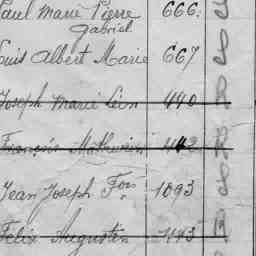 Paul Marie Pierre 666.
Gabriel
Louis Albert Marie 667
Joseph Marie Léon 440
François Mathurin 442
Jean Joseph Fois 1093
Félix Augustin 443